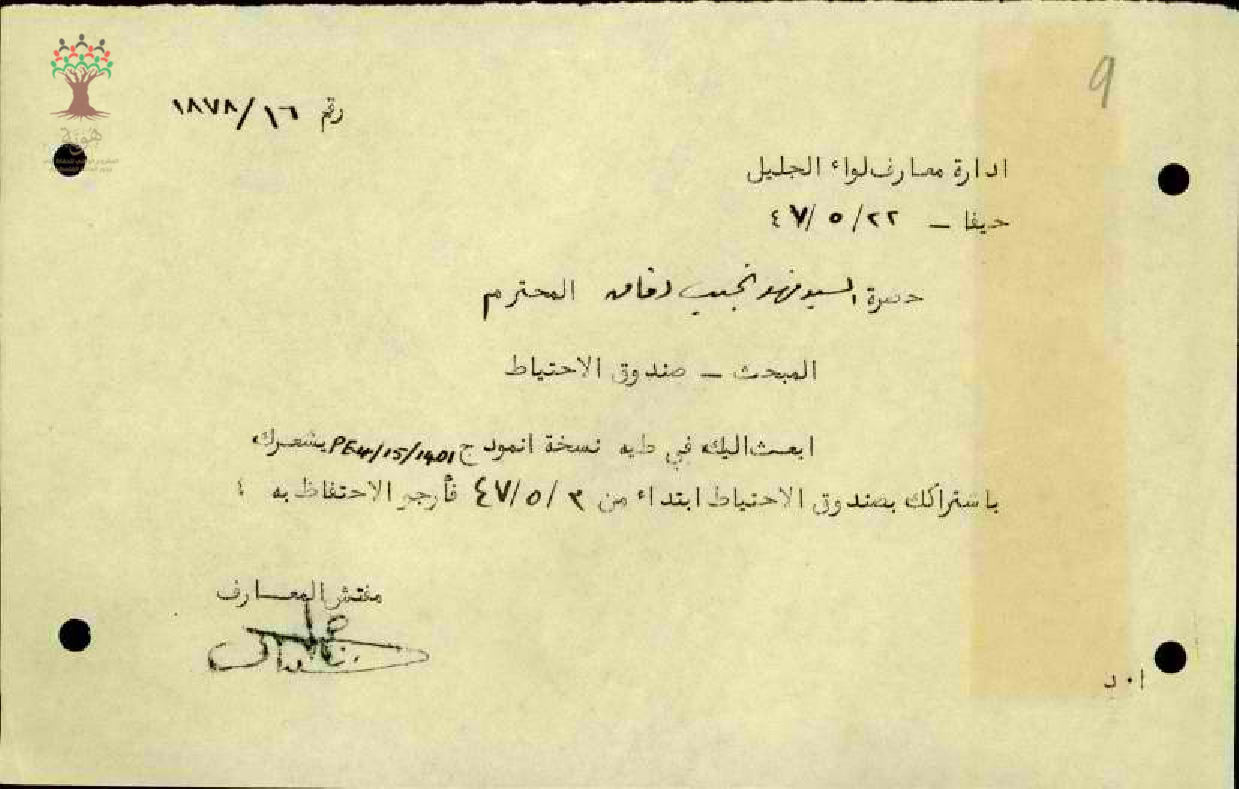 9
هوية
رقم ١٨٧٨/١٦
ادارة معارف لواء الجليل
حيفا - ٤٧/٥/٢٢
حضرة السيد نجيب المحترم
المبحث - صندوق الاحتياط
ابعث اليك في طيه نسخة انموذج PE4/15/1401 يشعرك
باشتراكك بصندوق الاحتياط ابتداء من ٤٧/٥/٣ فأرجو الاحتفاظ به
مفتش المعارف
ا٠د